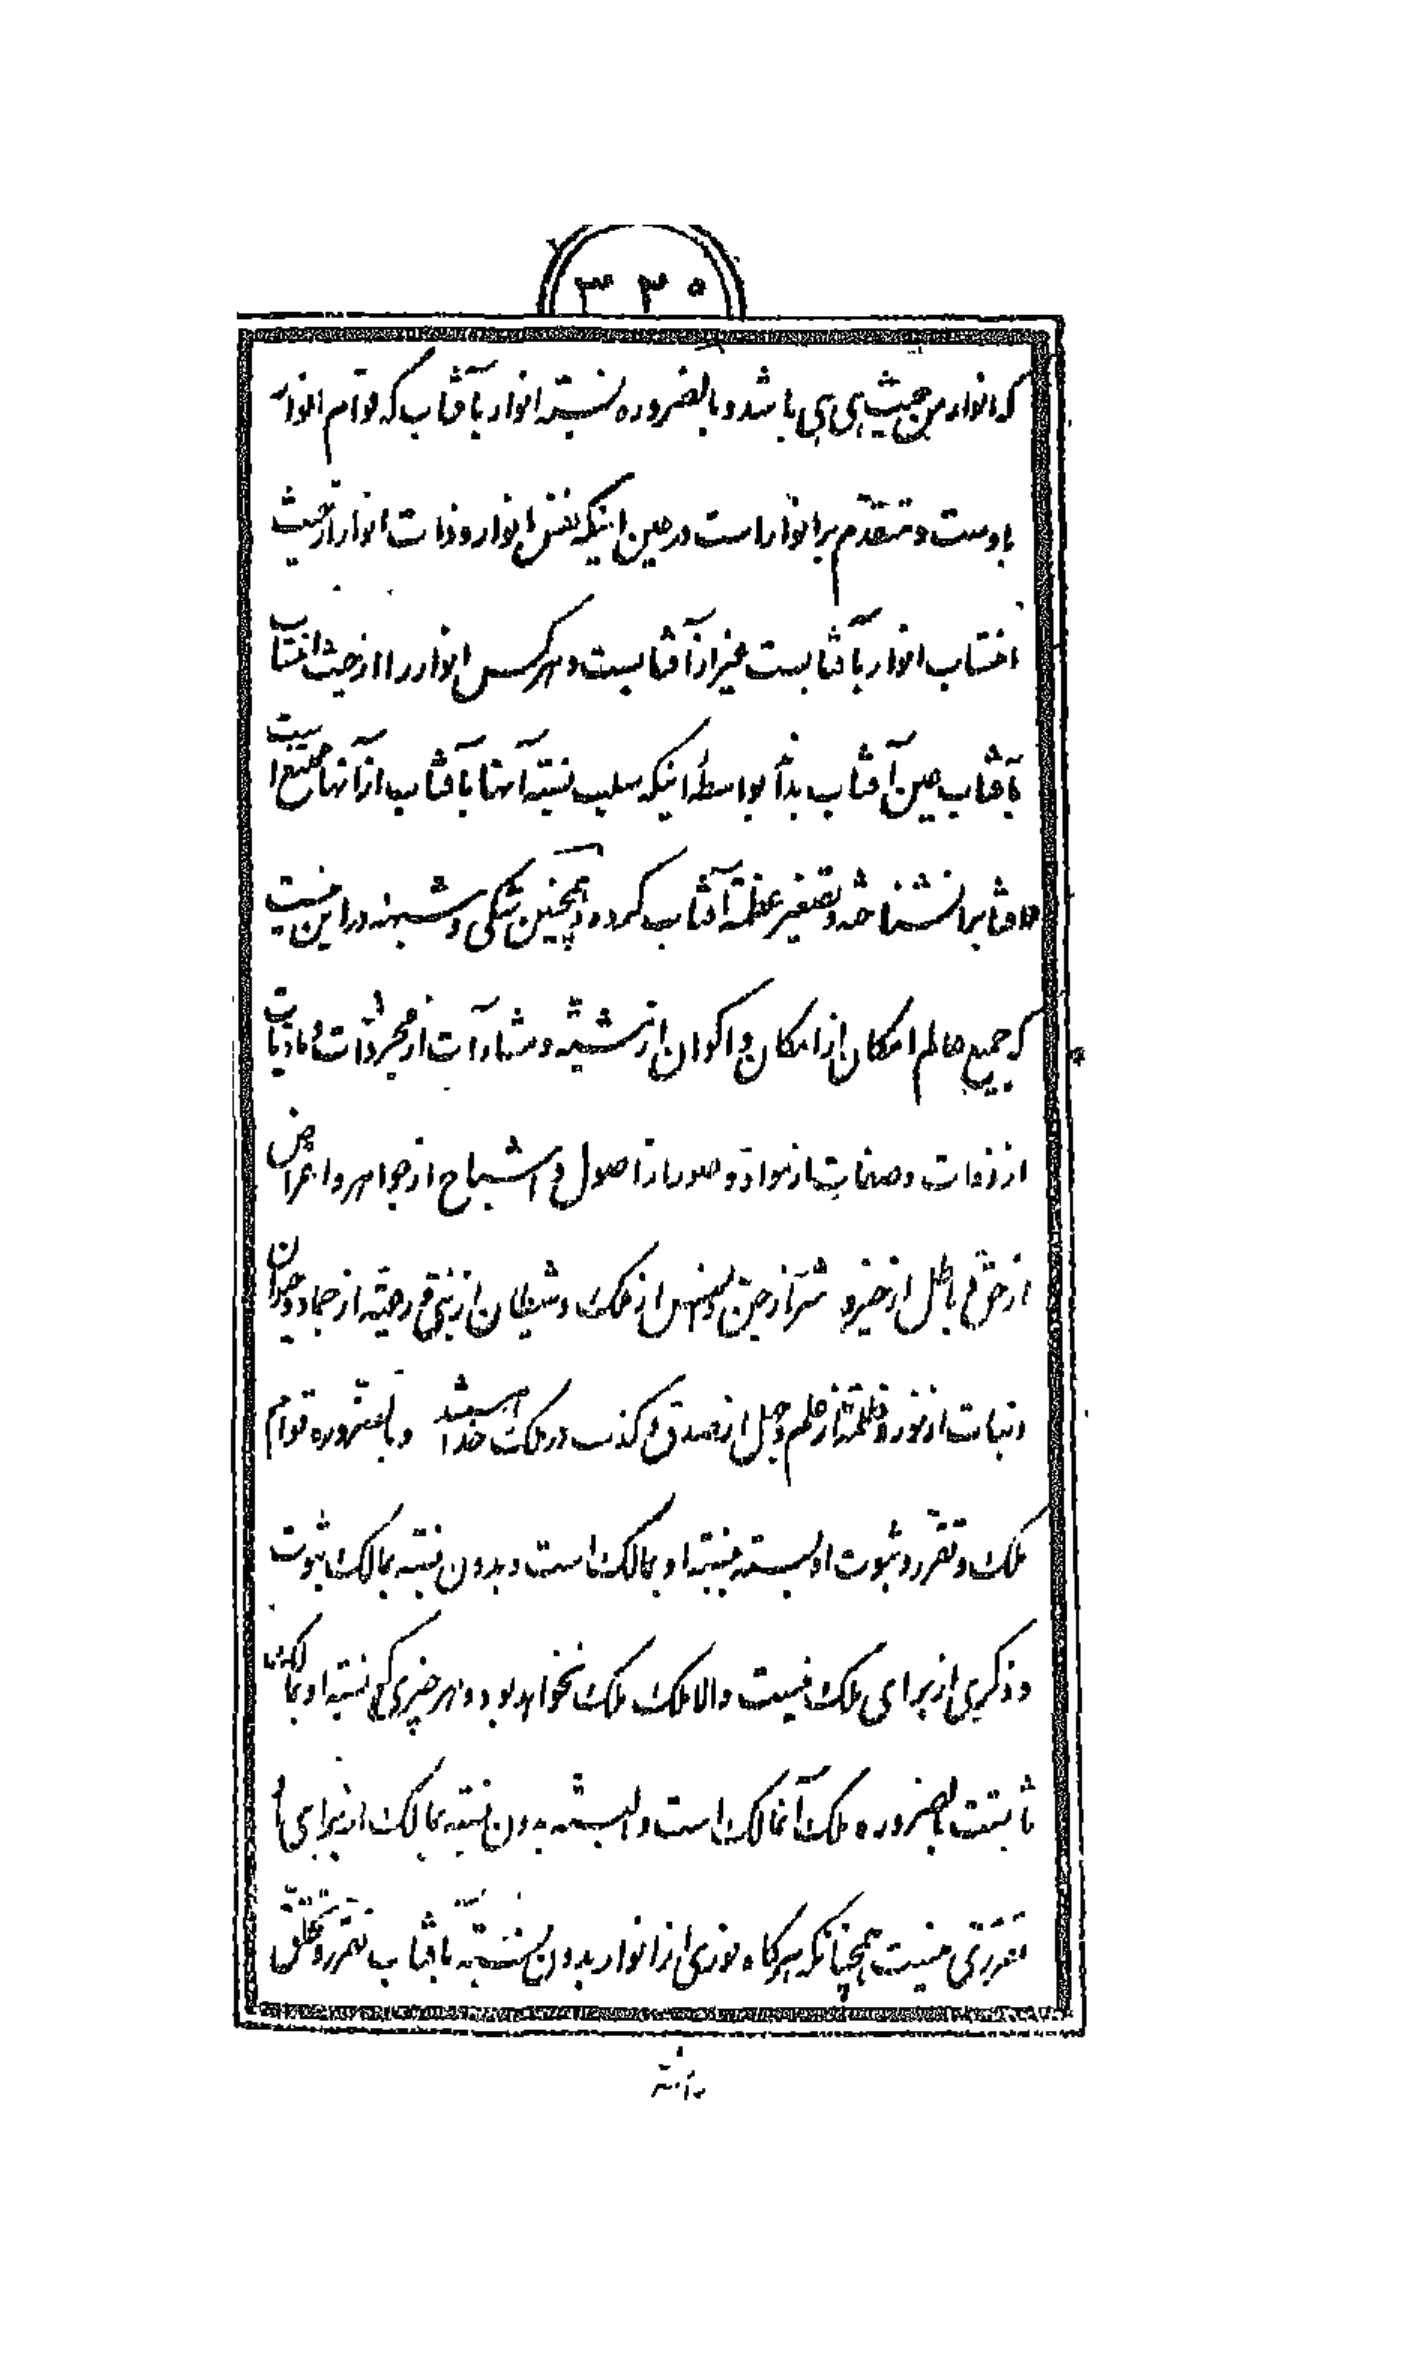 ۳۳۵
که انوار من حیث هی هی باشد و بالضروره نسبته انوار بآفتاب که قوام انوار
باوست و متقدم بر انوار است در عین اینکه نفس انوار و ذات انوار از حیث
انتساب انوار بآفتابست غیر از آفتابست و هر کس انوار را از حیث انتساب
بآفتاب عین آفتاب بداند بواسطه اینکه سلب نسبته آنها بآفتاب از آنها ممتنع است
آفتابرا نشناخته و تصغیر عظمة آفتاب کرده و همچنین شکی و شبهه در این نیست
که جمیع عالم امکان از امکان و اکوان از مشیته و مشاءآت از مجردات و مادیات
از ذوات و صفات از مواد و صور از اصول و اشباح از جواهر و اعراض
از حق و باطل از خیر و شر از جن و انس از ملک و شیطان از نبی و رعیته از جماد و حیوان
و نبات از نور و ظلمة از علم و جهل از صدق و کذب در ملک خدا میباشد و بالضروره قوام
ملک و تقرر و ثبوت او بسته بنسبته او بمالک است و بدون نسبته بمالک ثبوت
و ذکری از برای ملک نیست والا ملک ملک نخواهد بود و هر چیزی که نسبته او بمالک
ثابتست بالضروره ملک آنمالک است و البته بدون نسبته بمالک از برای او
تقرری نیست همچنانکه هرگاه نوری از انوار بدون نسبته بآفتاب تقرر و تحقق
داشته